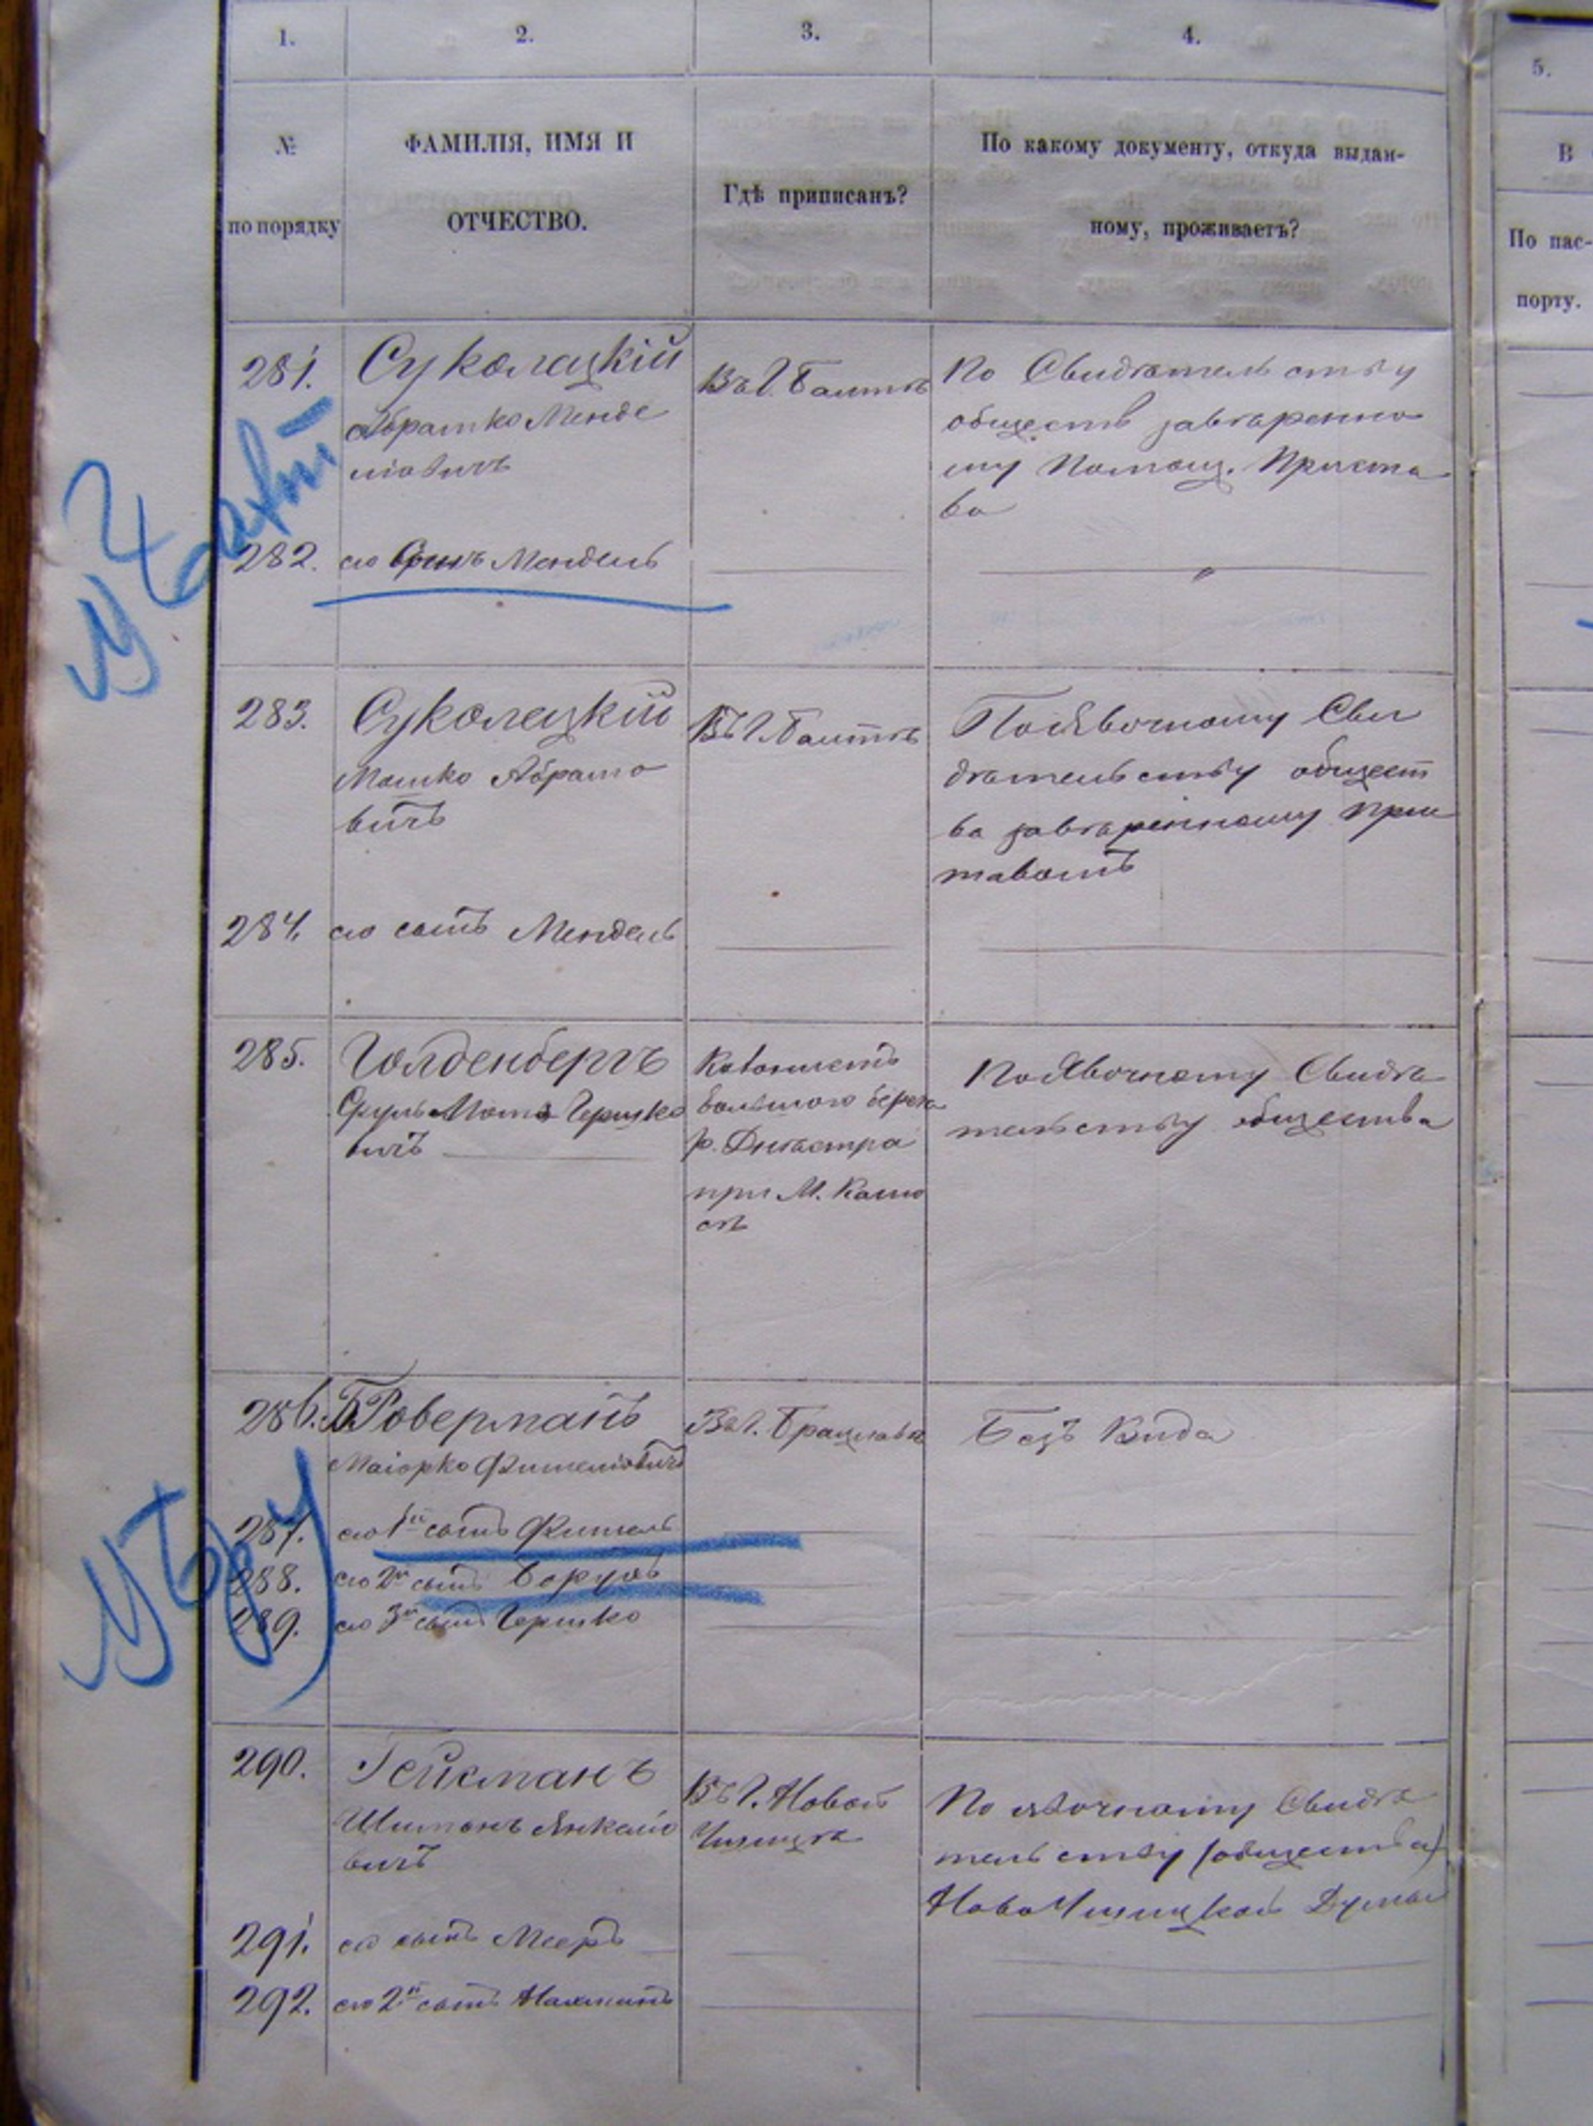 1.
2.
3.
4.
5.
№
по порядку
ФАМИЛІЯ, ИМЯ И
ОТЧЕСТВО.
Гдѣ приписанъ?
По какому документу, откуда выдан-
ному, проживаетъ?
В
По пас-
порту.
281.
Суколецкій
Абрамко Менде
ліовичъ
Въ Г. Балтѣ
По Свидѣтельству
обществ завѣренно
му Помощ. Приста
ва
282.
его Сынъ Мендель
283.
Суколецкій
Мошко Абрамо
вичъ
Въ Г. Балтѣ
По Явочному Сви
дѣтельству общест
ва завѣренному При
ставомъ
284.
его сынъ Мендель
285.
Голденбергъ
Срулъ Гершко
вичъ
Колонистъ
берега
р. Днѣстра
при М. Камю
286.
Роверманъ
Маіорко Фишеліовичъ
Въ Г. Брацлавѣ
Безъ Вида
287.
его 1й сынъ Фишель
288.
его 2й сынъ Борухъ
289.
его 3й сынъ Гершко
290.
Гейсманъ
Шимонъ Янкеліо
вичъ
Въ Г. Новой
Ушицѣ
По явочному Свидѣ
тельству (общества)
Ново Ушицкой Думы
291.
его сынъ Мееръ
292.
его 2й сынъ Нахманъ